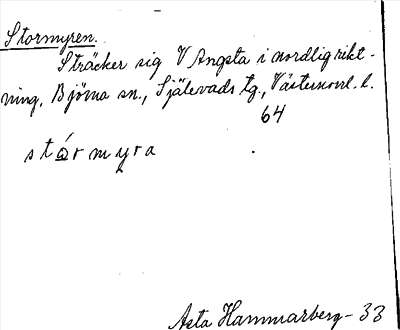 Stormyren.
Sträcker sig V Angsta i nordlig rikt-
ning, Björna sn., Själevads tg., Västernorrl. l.
64
stórmyra
Asta Hammarberg - 33